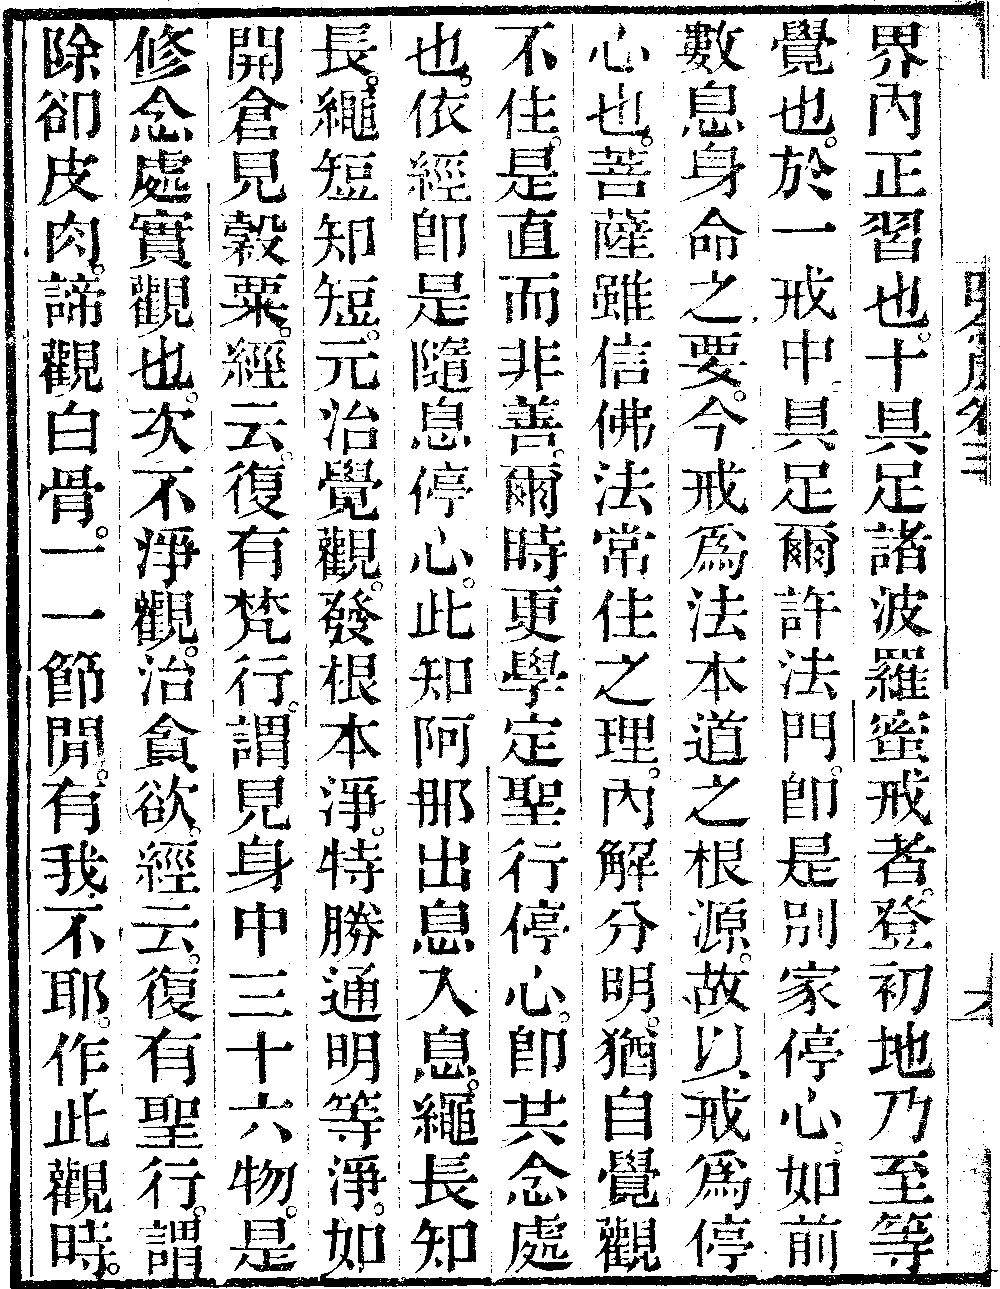 界內正習也。十具足諸波羅蜜戒者。登初地乃至等
覺也。於一戒中具足爾許法門。卽是別家停心。如前
數息身命之要。今戒爲法本道之根源。故以戒爲停
心也。菩薩雖信佛法常住之理。內解分明。猶自覺觀
不住。是直而非善。爾時更學定聖行停心。卽共念處
也。依經卽是隨息停心。此知阿那出息入息。繩長知
長。繩短知短。元治覺觀。發根本淨。特勝通明等淨。如
開倉見穀粟。經云。復有梵行。謂見身中三十六物。是
修念處實觀也。次不淨觀。治貪欲。經云。復有聖行。謂
除卻皮肉。諦觀白骨。一一節閒。有我不耶。作此觀時。